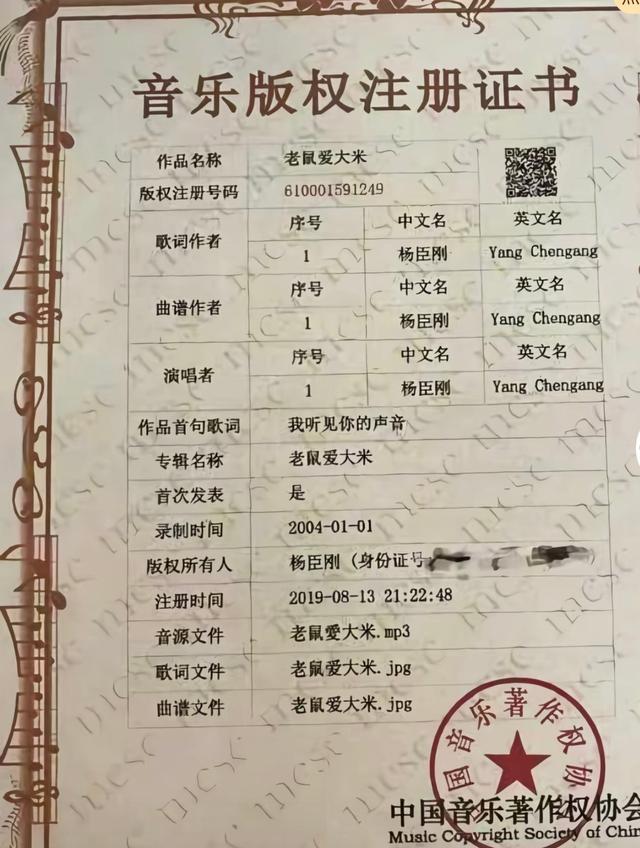 音乐版权注册证书
作品名称 老鼠爱大米
版权注册号码 610001591249
歌词作者 序号 中文名 英文名
1 杨臣刚 Yang Chengang
曲谱作者 序号 中文名 英文名
1 杨臣刚 Yang Chengang
演唱者 序号 中文名 英文名
1 杨臣刚 Yang Chengang
作品首句歌词 我听见你的声音
专辑名称 老鼠爱大米
首次发表 是
录制时间 2004-01-01
版权所有人 杨臣刚 (身份证号 )
注册时间 2019-08-13 21:22:48
音源文件 老鼠愛大米.mp3
歌词文件 老鼠愛大米.jpg
曲谱文件 老鼠愛大米.jpg
国音乐著作权协
中国音乐著作权协会
Music Copyright Society of Chin
mcsc